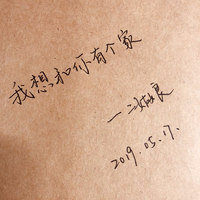 我想和你有个家
一江姑良
2019.05.17.